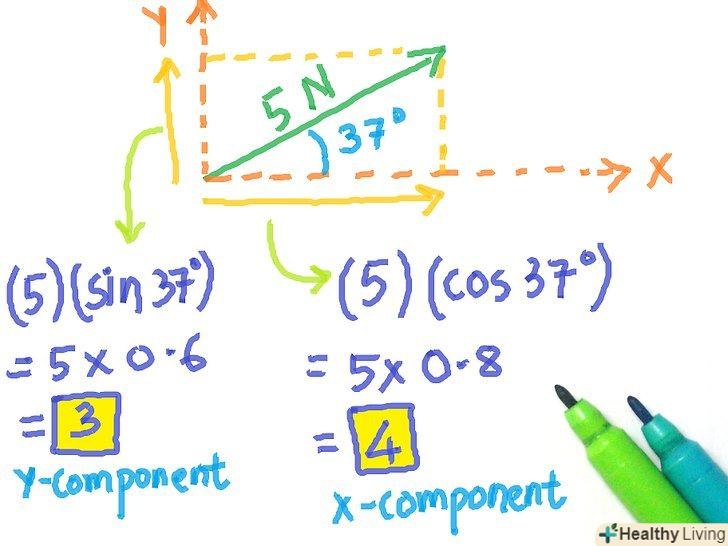 Y
5 N
37°
X
(5)(sin 37°)
= 5 x 0·6
= 3
Y-component
(5) (cos 37°)
= 5 x 0·8
= 4
X-component
Healthy Living